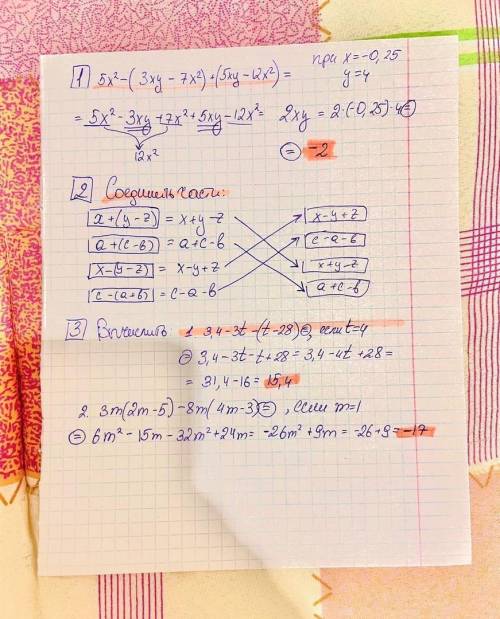 1 5x²-(3xy-7x²)+(5xy-12x²)= при x=-0,25
y=4
= 5x²-3xy+7x²+5xy-12x²= 2xy = 2·(-0,25)·4=
12x²
= -2
2 Соединить части:
x+(y-z) = x+y-z x-y+z
a+(c-в) = a+c-в c-a-в
x-(y-z) = x-y+z x+y-z
c-(a+в) = c-a-в a+c-в
3 Вычислить: 1. 3,4-3t-(t-28)=, если t=4
= 3,4-3t-t+28= 3,4-4t+28=
= 31,4-16= 15,4
2. 3m(2m-5)-8m(4m-3)=, если m=1
= 6m²-15m-32m²+24m= -26m²+9m= -26+9= -17